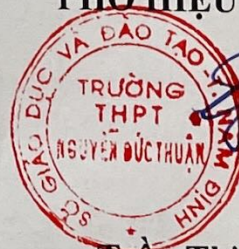 PHÓ HIỆU
SỞ GIÁO DỤC VÀ ĐÀO TẠO - T. NAM ĐỊNH
TRƯỜNG
THPT
NGUYỄN ĐỨC THUẬN